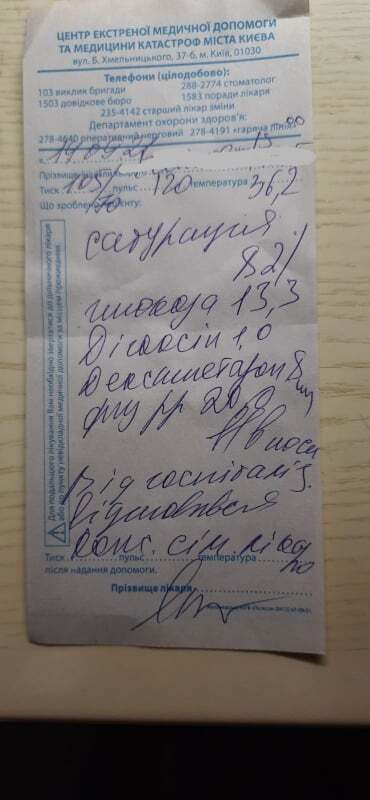 ЦЕНТР ЕКСТРЕНОЇ МЕДИЧНОЇ ДОПОМОГИ
ТА МЕДИЦИНИ КАТАСТРОФ МІСТА КИЄВА
вул. Б. Хмельницького, 37-б, м. Київ, 01030
Телефони (цілодобово):
103 виклик бригади 288-2774 стоматолог
1503 довідкове бюро 1583 поради лікаря
235-4142 старший лікар зміни
Департамент охорони здоров'я:
278-4640 оперативний черговий 278-4191 «гаряча лінія»
Прізвище
Тиск 105/70 пульс 120 температура 36,2
Що зроблено пацієнту:
сатурация
82%
глюкоза 13,3
Дігоксін 1,0
Дексаметазон 8 мг
фіз рр 20,0
Від госпіталіз.
відмовився
Конс. сім лікар
Тиск пульс температура
після надання допомоги.
Прізвище лікаря
Для подальшого лікування Вам необхідно звернутися до дільничного лікаря
або до пункту невідкладної медичної допомоги за місцем проживання.